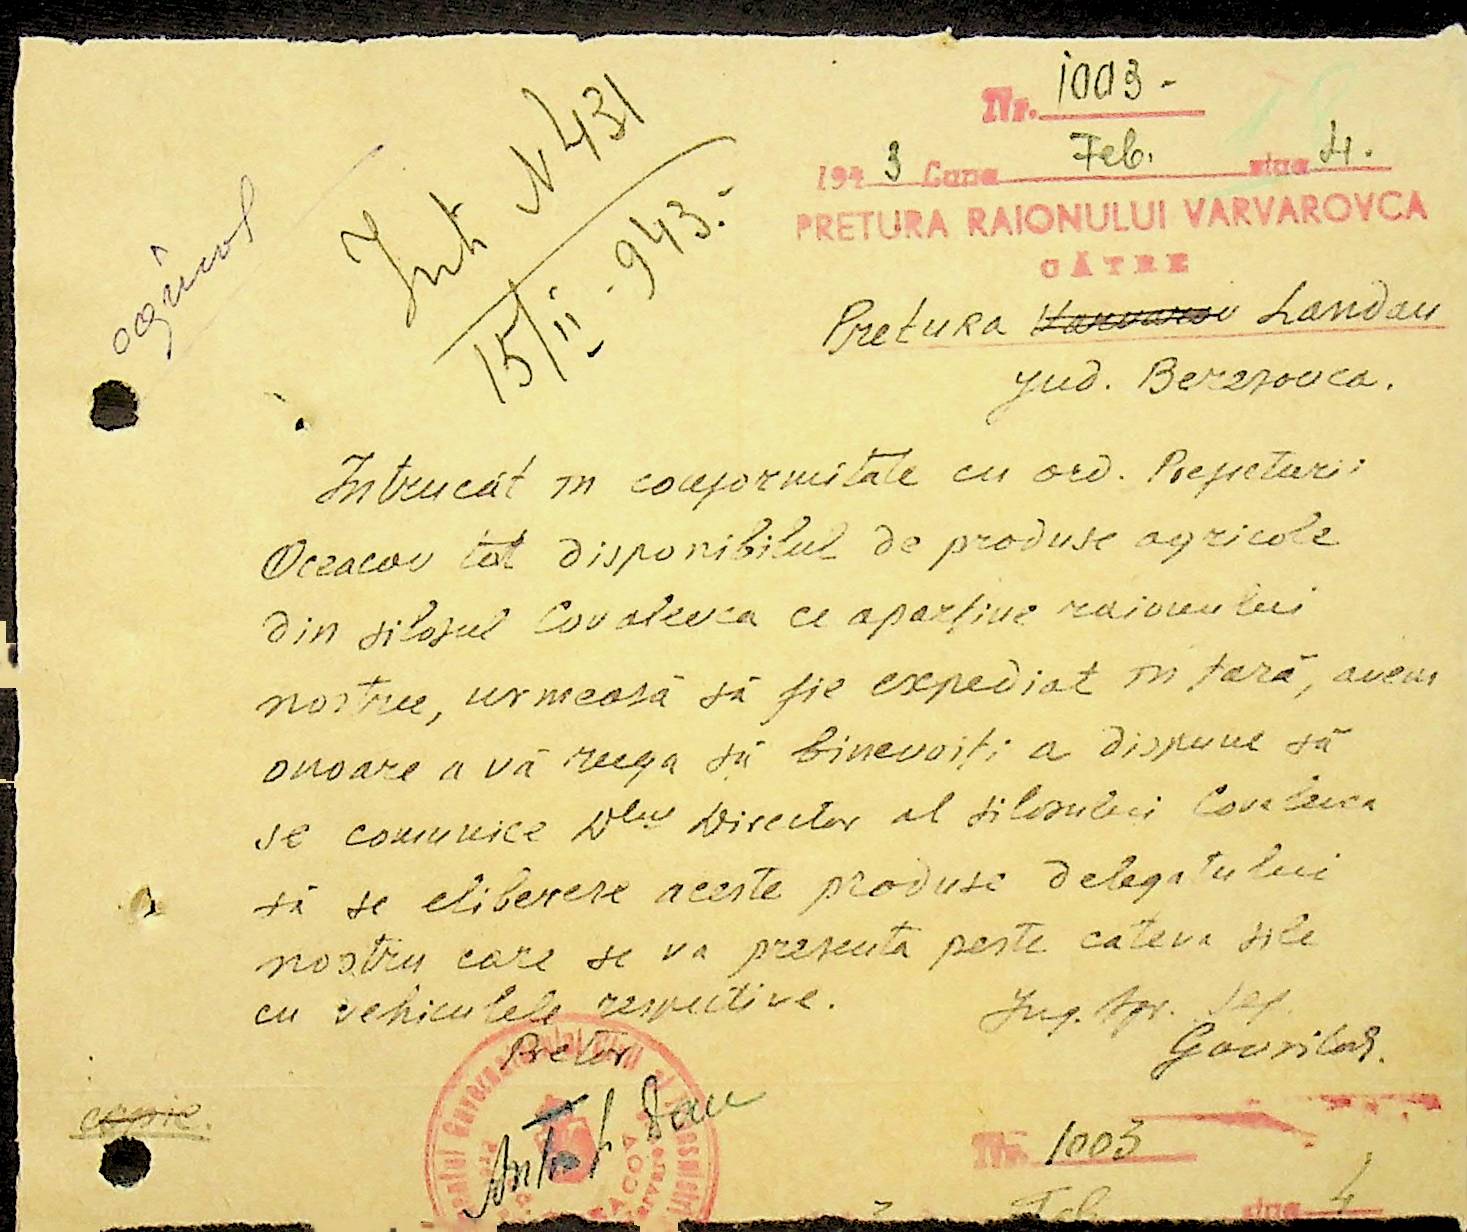 Nr. 1003 -
1943 Luna Feb. ziua 4.
PRETURA RAIONULUI VARVAROVCA
CĂTRE
Pretura Landau
jud. Berezovca.
agricol
Int N 431
15/II - 943.
Intrucât în conformitate cu ord. Prefecturii
Oceacov tot disponibilul de produse agricole
din silosul Covalevca ce aparține raionului
nostru, urmează să fie expediat în țară, avem
onoare a vă ruga să binevoiți a dispune să
se comunice Dlui Director al silosului Covalevca
să se elibereze aceste produse delegatului
nostru care se va prezenta peste cateva zile
cu vehiculele respective.
Pretor
Ing. Agr. Șef.
Gavrilaș.
copie.
Nr. 1003
Feb ziua 4